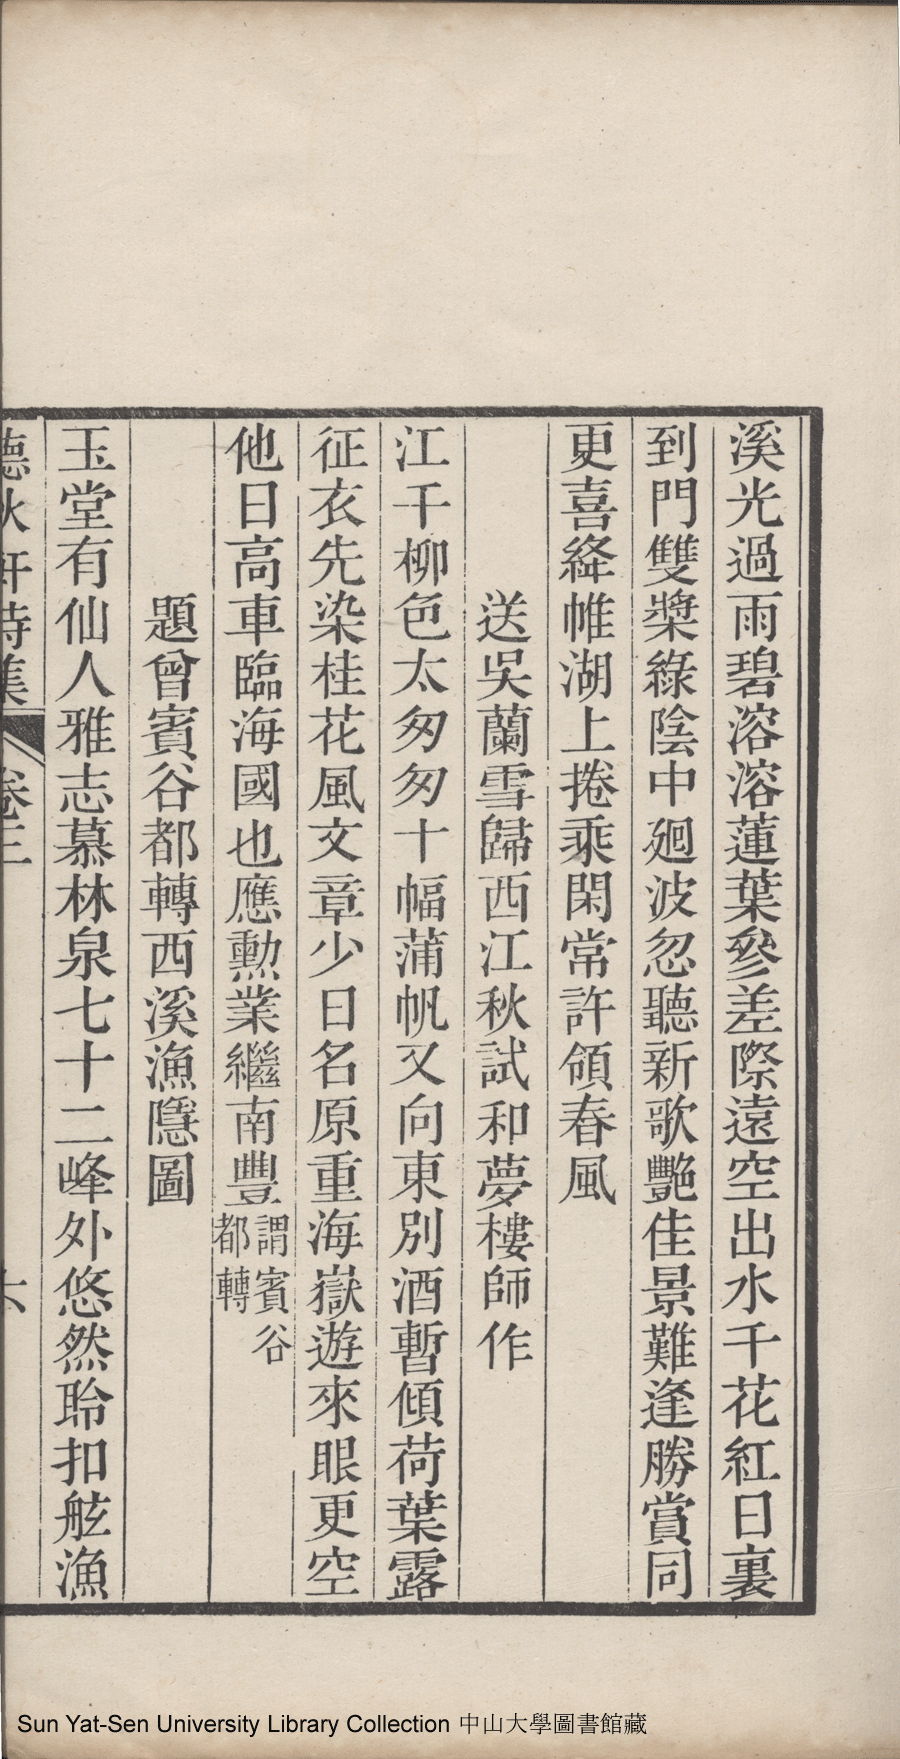 溪光過雨碧溶溶蓮葉參差際遠空出水千花紅日裏
到門雙槳綠陰中廻波忽聽新歌艷佳景難逢勝賞同
更喜絳帷湖上捲乘閑常許領春風
送吳蘭雪歸西江秋試和夢樓師作
江干柳色太匆匆十幅蒲帆又向東別酒暫傾荷葉露
征衣先染桂花風文章少日名原重海嶽遊來眼更空
他日高車臨海國也應勲業繼南豐謂賓谷都轉
題曾賓谷都轉西溪漁隱圖
玉堂有仙人雅志慕林泉七十二峰外悠然聆扣舷漁
聽秋軒詩集 卷三 六
Sun Yat-Sen University Library Collection 中山大學圖書館藏